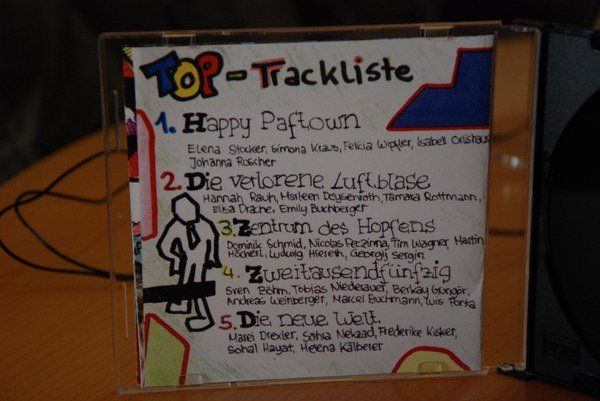 TOP - Trackliste
1. Happy Paftown
Elena Stocker, Simona Kraus, Felicia Wipfler, Isabell Ortishaus
Johanna Roscher
2. Die verlorene Luftblase
Hannah Rauh, Marleen Deysenroth, Tamara Rottmann,
Elisa Drache, Emily Buchberger
3. Zentrum des Hopfens
Dominik Schmid, Nicolas Feczinna, Tim Wagner, Martin
Höcherl, Ludwig Hierein, Georgij Sergin
4. Zweitausendfünfzig
Sven Böhm, Tobias Niederauer, Berkay Güngör,
Andreas Weinberger, Marcel Buchmann, Luis Ponta
5. Die neue Welt
Marei Drexler, Sahra Nekzad, Frederike Kisker,
Sohal Hayat, Helena Kälberer